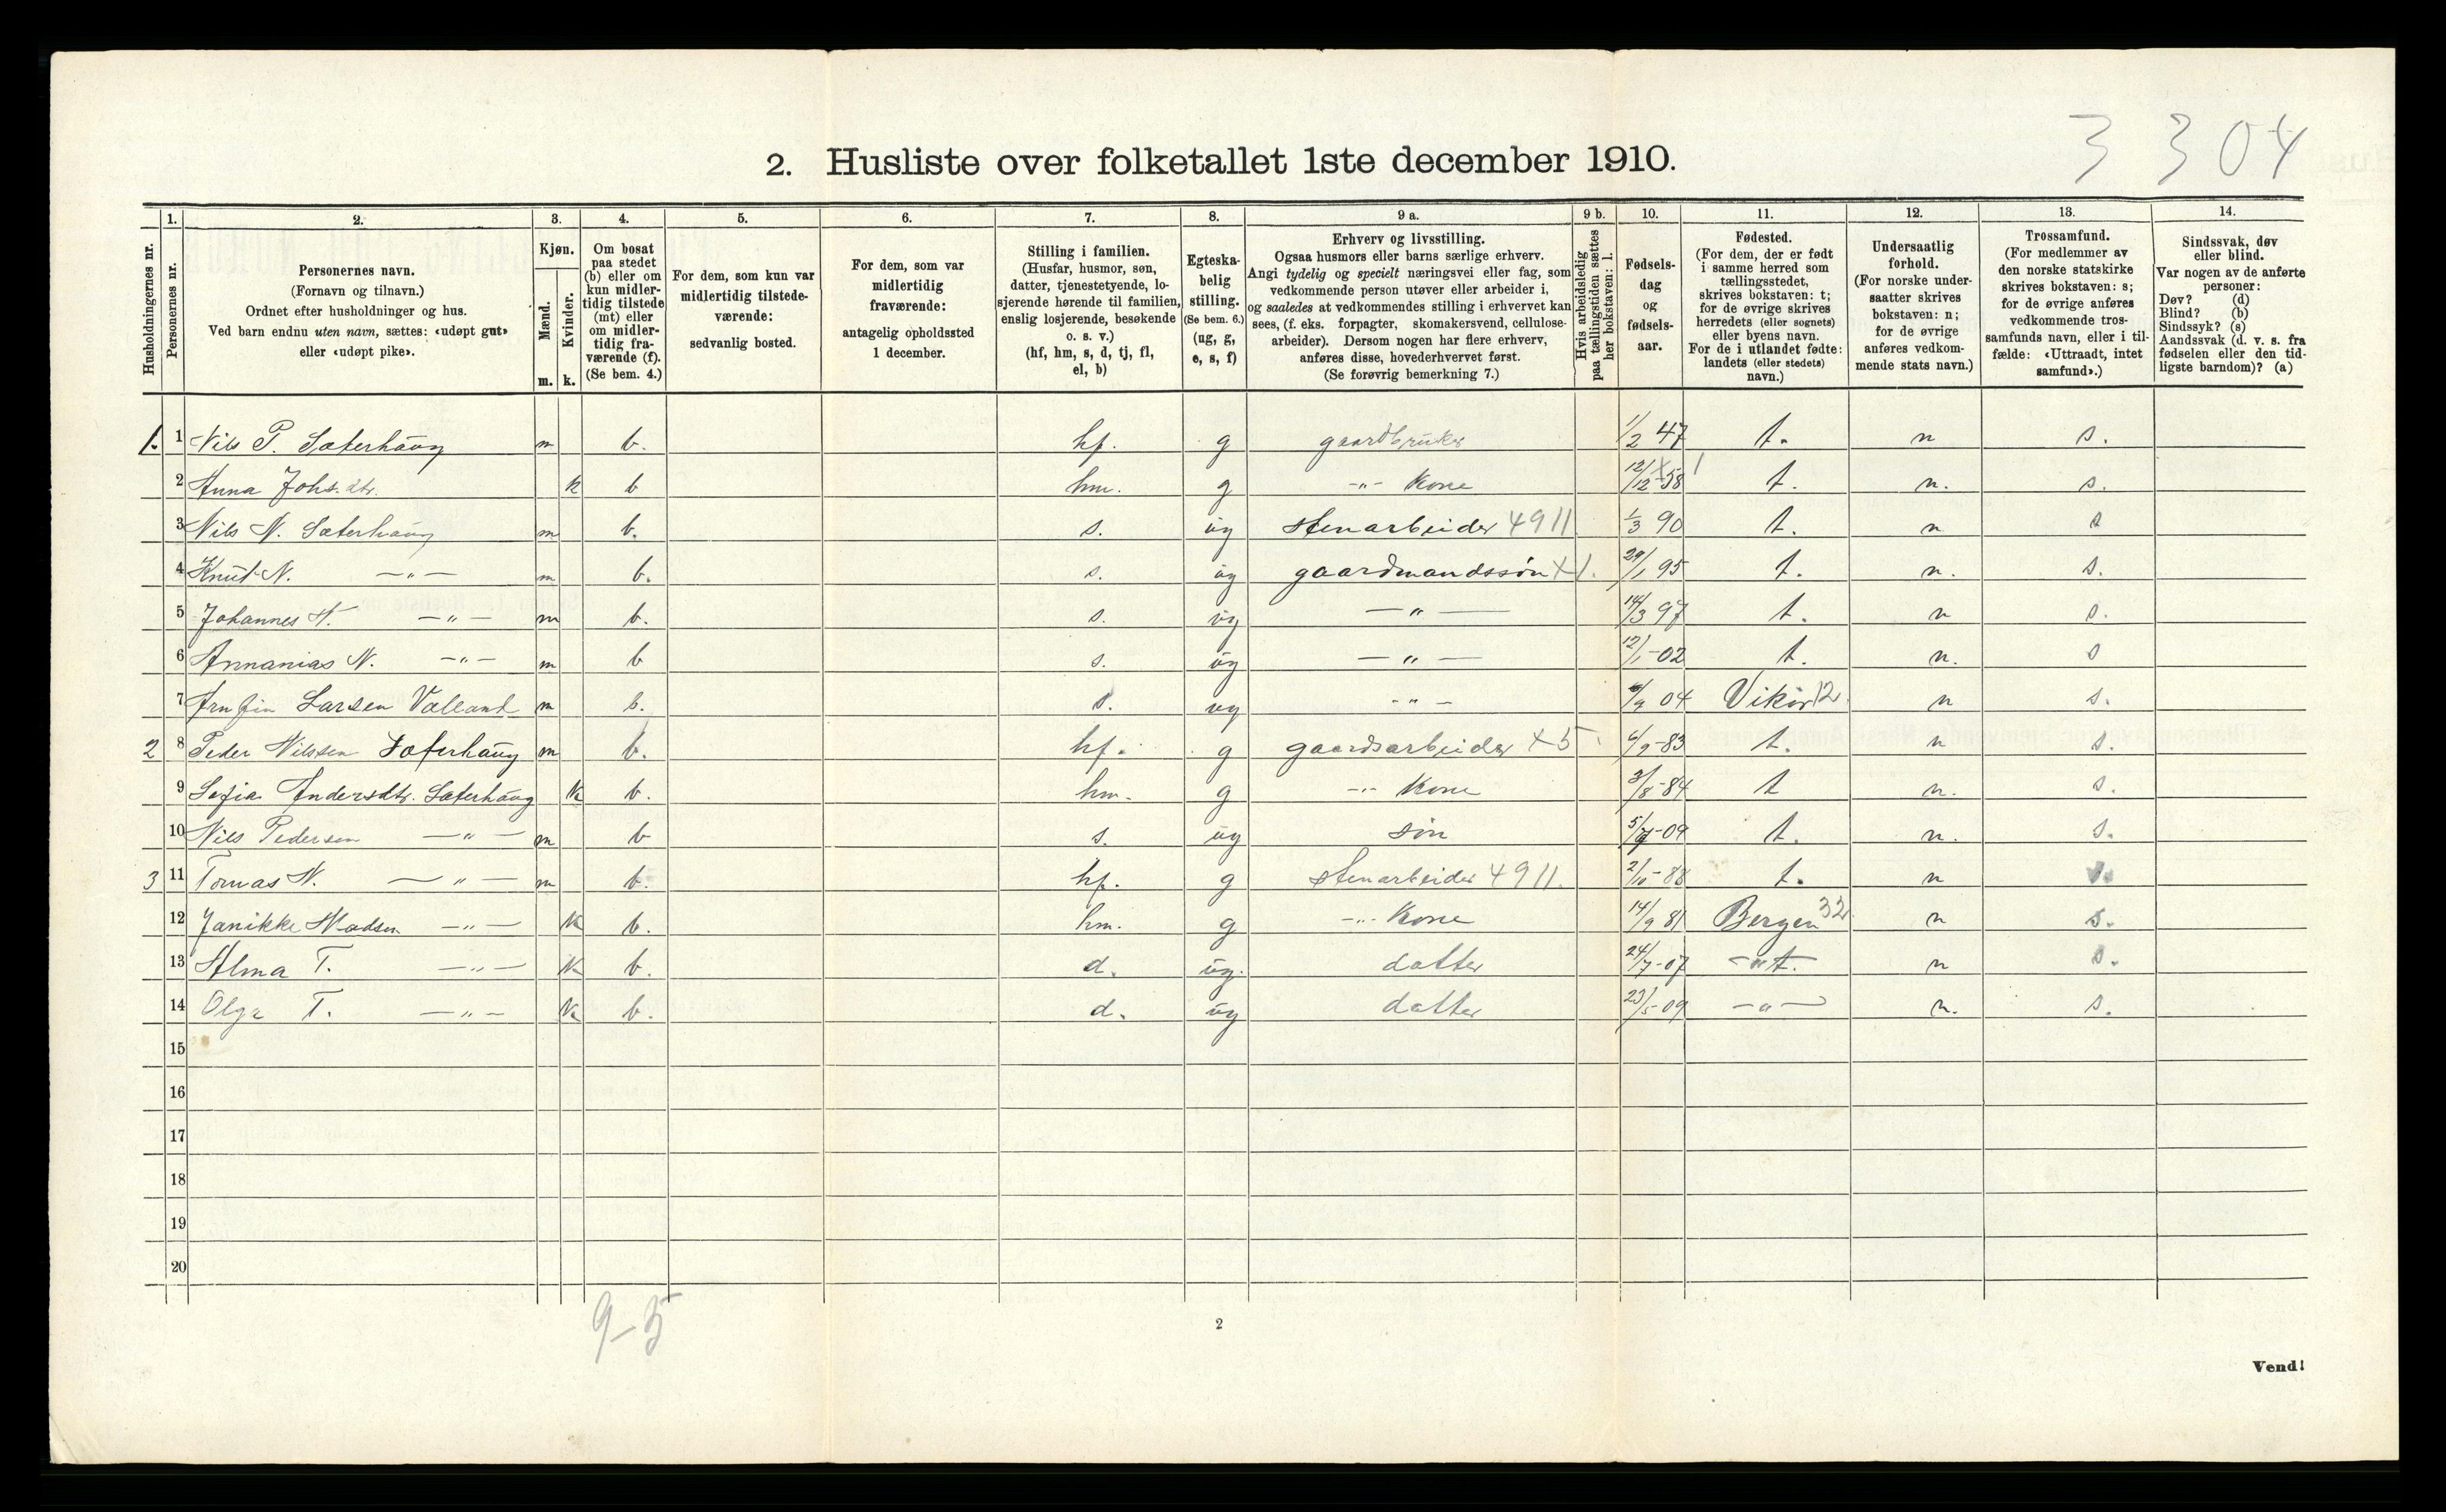 3 304
2. Husliste over folketallet 1ste december 1910.
1. 2. 3. 4. 5. 6. 7. 8. 9 a. 9 b. 10. 11. 12. 13. 14.
Husholdningernes nr.
Personernes nr.
Personernes navn.
(Fornavn og tilnavn.)
Ordnet efter husholdninger og hus.
Ved barn endnu uten navn, sættes: «udøpt gut»
eller «udøpt pike».
Kjøn.
Mænd.
Kvinder.
m. k.
Om bosat
paa stedet
(b) eller om
kun midler-
tidig tilstede
(mt) eller
om midler-
tidig fra-
værende (f).
(Se bem. 4.)
For dem, som kun var
midlertidig tilstede-
værende:
sedvanlig bosted.
For dem, som var
midlertidig
fraværende:
antagelig opholdssted
1 december.
Stilling i familien.
(Husfar, husmor, søn,
datter, tjenestetyende, lo-
sjerende hørende til familien,
enslig losjerende, besøkende
o. s. v.)
(hf, hm, s, d, tj, fl,
el, b)
Egteska-
belig
stilling.
(Se bem. 6.)
(ug, g,
e, s, f)
Erhverv og livsstilling.
Ogsaa husmors eller barns særlige erhverv.
Angi tydelig og specielt næringsvei eller fag, som
vedkommende person utøver eller arbeider i,
og saaledes at vedkommendes stilling i erhvervet kan
sees, (f. eks. forpagter, skomakersvend, cellulose-
arbeider). Dersom nogen har flere erhverv,
anføres disse, hovederhvervet først.
(Se forøvrig bemerkning 7.)
Hvis arbeidsledig
paa tællingstiden sættes
her bokstaven: l.
Fødsels-
dag
og
fødsels-
aar.
Fødested.
(For dem, der er født
i samme herred som
tællingsstedet,
skrives bokstaven: t;
for de øvrige skrives
herredets (eller sognets)
eller byens navn.
For de i utlandet fødte:
landets (eller stedets)
navn.)
Undersaatlig
forhold.
(For norske under-
saatter skrives
bokstaven: n;
for de øvrige
anføres vedkom-
mende stats navn.)
Trossamfund.
(For medlemmer av
den norske statskirke
skrives bokstaven: s;
for de øvrige anføres
vedkommende tros-
samfunds navn, eller i til-
fælde: «Uttraadt, intet
samfund».)
Sindssvak, døv
eller blind.
Var nogen av de anførte
personer:
Døv? (d)
Blind? (b)
Sindssyk? (s)
Aandssvak (d. v. s. fra
fødselen eller den tid-
ligste barndom)? (a)
1. 1 Nils P. Sæterhaug m b. hf. g gaardbruker 1/2 47 t. n s.
2 Anna Johs.dtr. k b hm. g -"- Kone 12/12 58 t. n. s.
3 Nils N. Sæterhaug m b. s. ug stenarbeider 4911 1/3 90 t. n s
4 Knut N. -"- m b. s. ug gaardmandssøn X1. 29/1 95 t. n. s.
5 Johannes N. -"- m b. s. ug -"- 14/3 97 t. n s.
6 Annanias N. -"- m b s. ug -"- 12/1-02 t. n. s
7 Arnfin Larsen Valland m b. s. ug -"- /9 04 Vikør 12 n s.
2 8 Peder Nilssen Sæterhaug m b. hf. g gaardsarbeider X5 6/9-83 t. n s.
9 Sofia Andersdtr. Sæterhaug k b. hm. g -"- Kone 3/8-84 t n. s.
10 Nils Pedersen -"- m b s. ug søn 5/-09 t. n. s.
3 11 Tomas N. -"- m b. hf. g stenarbeider 4911. 2/10-88 t. n s.
12 Janikke Madsen -"- k b. hm. g -"- Kone 14/9 81 Bergen 32 n s.
13 Alma T. -"- k b. d. ug. datter 24/7-07 -"- t. n s.
14 Olga T. -"- k b. d. ug datter 23/5-09 -"- n. s.
15
16
17
18
19
20
9-5
2
Vend!